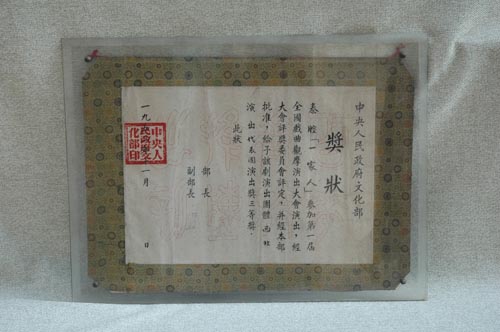 中央人民政府文化部
獎狀
秦腔「一家人」參加第一屆
全國戲曲觀摩演出大會演出，經
大會評獎委員會評定，并經本部
批准，給予該劇演出團體西北
演出代表團演出獎三等獎。
此狀
部長
副部長
一九
一月 日
中央人
民政府文
化部印